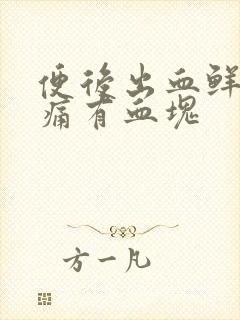 便後出血鲜
痛有血塊
方一凡